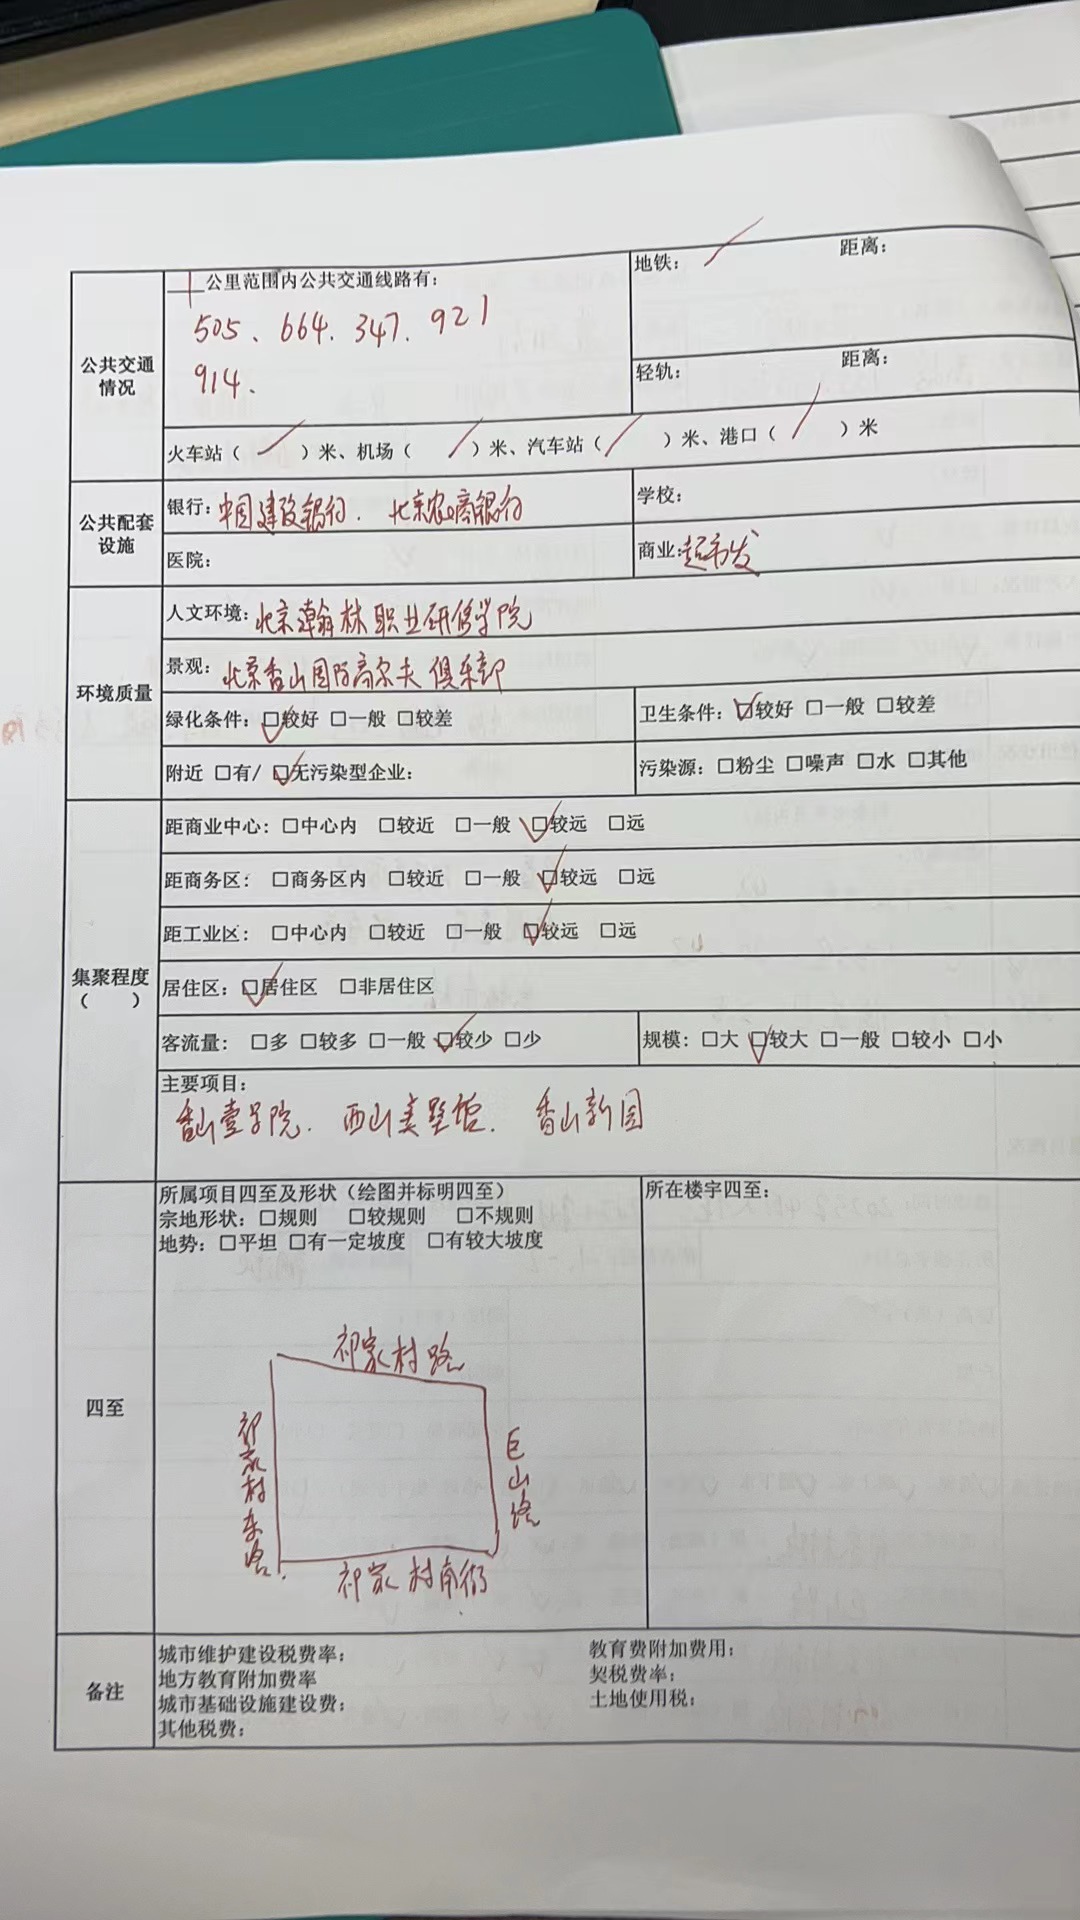 公共交通情况
十公里范围内公共交通线路有：
505、664.347.921
914.
地铁： / 距离：
轻轨： 距离：
火车站（ / ）米、机场（ / ）米、汽车站（ / ）米、港口（ / ）米
公共配套设施
银行：中国建设银行．北京农商银行
学校：
医院：
商业：超市发
环境质量
人文环境：北京瀚林职业研修学院
景观：北京香山国际高尔夫俱乐部
绿化条件：☑较好 □一般 □较差
卫生条件：☑较好 □一般 □较差
附近 □有/ ☑无污染型企业：
污染源：□粉尘 □噪声 □水 □其他
集聚程度（ ）
距商业中心：□中心内 □较近 □一般 ☑较远 □远
距商务区： □商务区内 □较近 □一般 ☑较远 □远
距工业区： □中心内 □较近 □一般 ☑较远 □远
居住区：☑居住区 □非居住区
客流量： □多 □较多 □一般 ☑较少 □少
规模：□大 ☑较大 □一般 □较小 □小
主要项目：
香山壹学院．西山美墅馆．香山新园
四至
所属项目四至及形状（绘图并标明四至）
宗地形状：□规则 □较规则 □不规则
地势：□平坦 □有一定坡度 □有较大坡度
所在楼宇四至：
祁家村路
祁家村东路.
巨山路
祁家村南街
备注
城市维护建设税费率：
教育费附加费用：
地方教育附加费率
契税费率：
城市基础设施建设费：
土地使用税：
其他税费：